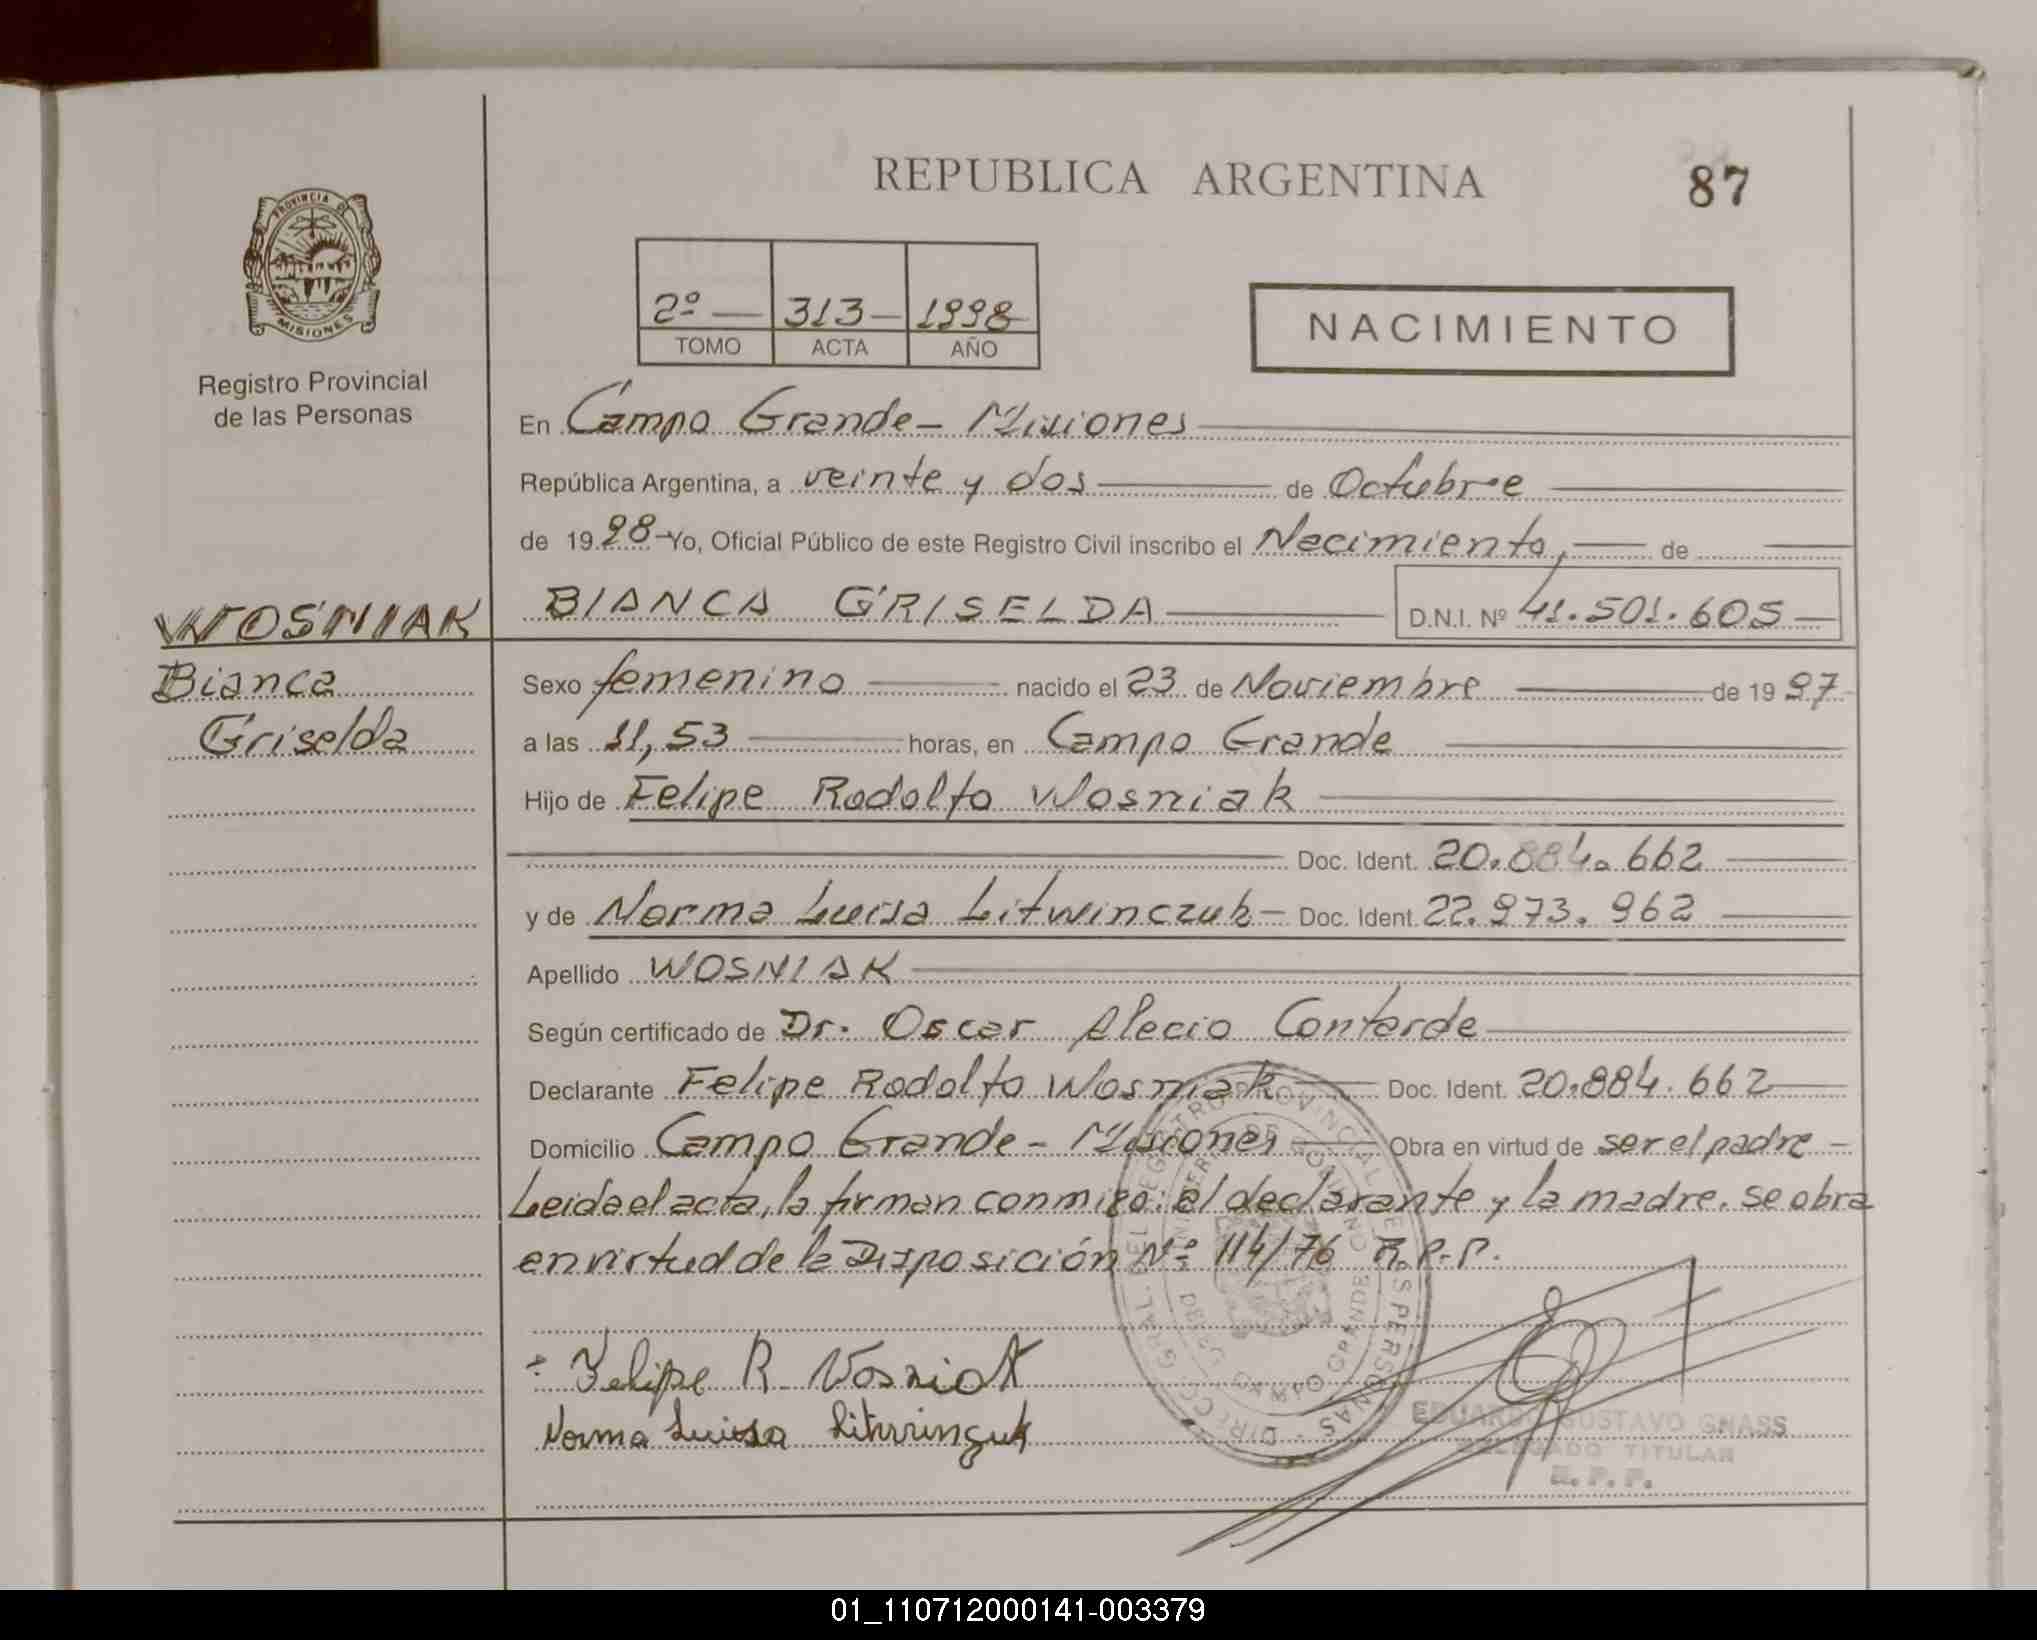 REPUBLICA ARGENTINA
87
PROVINCIA DE
MISIONES
Registro Provincial
de las Personas
2º 313 1998
TOMO ACTA AÑO
NACIMIENTO
En Campo Grande - Misiones
República Argentina, a veinte y dos de Octubre
de 19 98 Yo, Oficial Público de este Registro Civil inscribo el Nacimiento, de
BIANCA GRISELDA D.N.I. Nº 41.501.605
WOSNIAK
Bianca
Griselda
Sexo femenino nacido el 23 de Noviembre de 19 97
a las 11,53 horas, en Campo Grande
Hijo de Felipe Rodolfo Wosniak
Doc. Ident. 20.884.662
y de Norma Luisa Litwinczuk - Doc. Ident. 22.973.962
Apellido WOSNIAK
Según certificado de Dr. Oscar Alecio Contarde
Declarante Felipe Rodolfo Wosniak Doc. Ident. 20.884.662
Domicilio Campo Grande - Misiones Obra en virtud de ser el padre
Leida el acta, la firman conmigo: el declarante y la madre. Se obra
en virtud de la Disposición Nº 114/76 R.P.P.
Felipe R. Wosniak
Norma Luisa
DIRECC. GRAL. DEL REGISTRO PROVINCIAL DE LAS PERSONAS
CAMPO GRANDE
EDUARDO GUSTAVO GNASS
DELEGADO TITULAR
R. P. P.
01_110712000141-003379